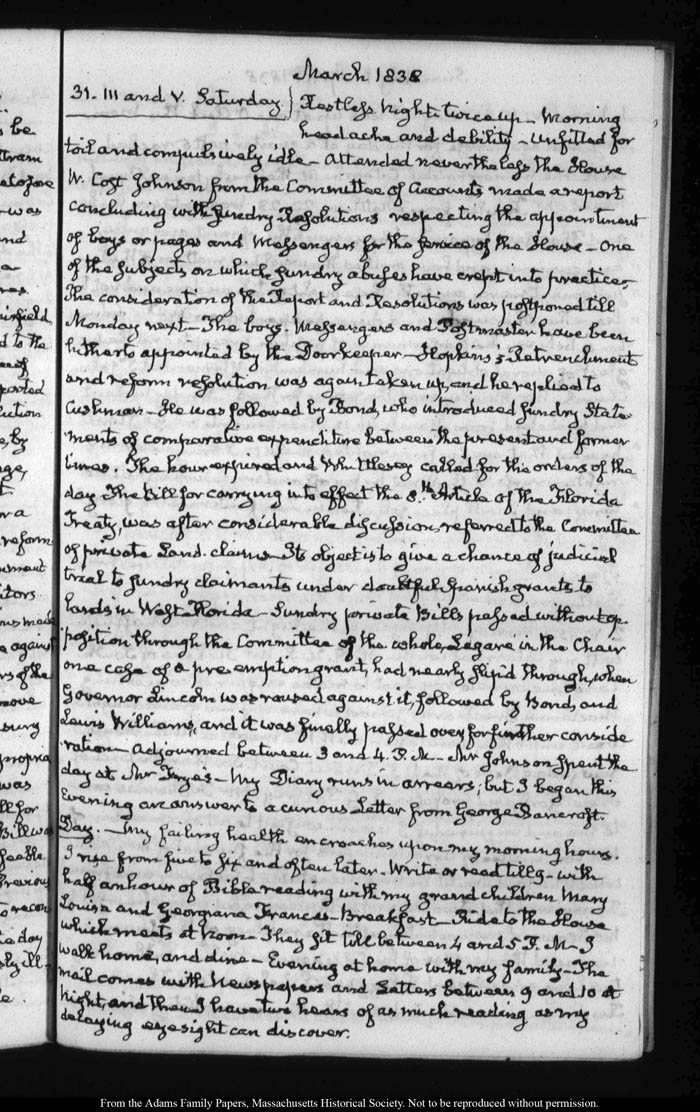 March 1838
31. III and V. Saturday. } Restless night. twice up – Morning
headache and debility – unfitted for
toil and compulsively idle – Attended nevertheless the House
W. Cost Johnson from the Committee of Accounts made a report
concluding with sundry Resolutions respecting the appointment
of boys or pages and Messengers for the service of the House – One
of the subjects on which sundry abuses have crept into practice.
The consideration of the Report and Resolutions was postponed till
Monday next – The boys. Messengers and Postmaster have been
hitherto appointed by the Doorkeeper – Hopkins's Retrenchment
and reform resolution was again taken up, and he replied to
Cushman – He was followed by Bond, who introduced sundry State
ments of comparative expenditure between the present and former
times. The hour expired and Whittlesey called for the orders of the
day The Bill for carrying into effect the 8.th Article of the Florida
Treaty, was after considerable discussion, referred to the Committee
of private Land. claims – Its object is to give a chance of judicial
trial to sundry claimants under doubtful Spanish grants to
lands in West Florida – Sundry private Bills passed without op-
position through the Committee of the whole, Legaré in the Chair
one case of a pre-emption grant, had nearly slip'd through, when
Governor Lincoln was roused against it, followed by Bond, and
Lewis Williams, and it was finally passed over for further conside
ration – Adjourned between 3 and 4. P.M. – Mr Johnson spent the
day at Mr Frye's – My Diary runs in arrears; but I began this
Evening an answer to a curious Letter from George Bancroft.
Day. – My failing health encroaches upon my morning hours.
I rise from five to six and often later – Write or read till 9 – with
half an hour of Bible reading with my grand children Mary
Louisa and Georgiana Frances – Breakfast – Ride to the House
which meets at noon – They sit till between 4 and 5 P.M – I
walk home, and dine – Evening at home with my family – The
mail comes with Newspapers and Letters between 9 and 10 at
night, and then I have two hours of as much reading as my
decaying eyesight can discover.
be
was
and
a
d to the
ported
lution
e, by
reform
ditors.
made
again
rs of the
move
propria
was
ll for
Bill was
feeble.
previous
to recon
e day
From the Adams Family Papers, Massachusetts Historical Society. Not to be reproduced without permission.